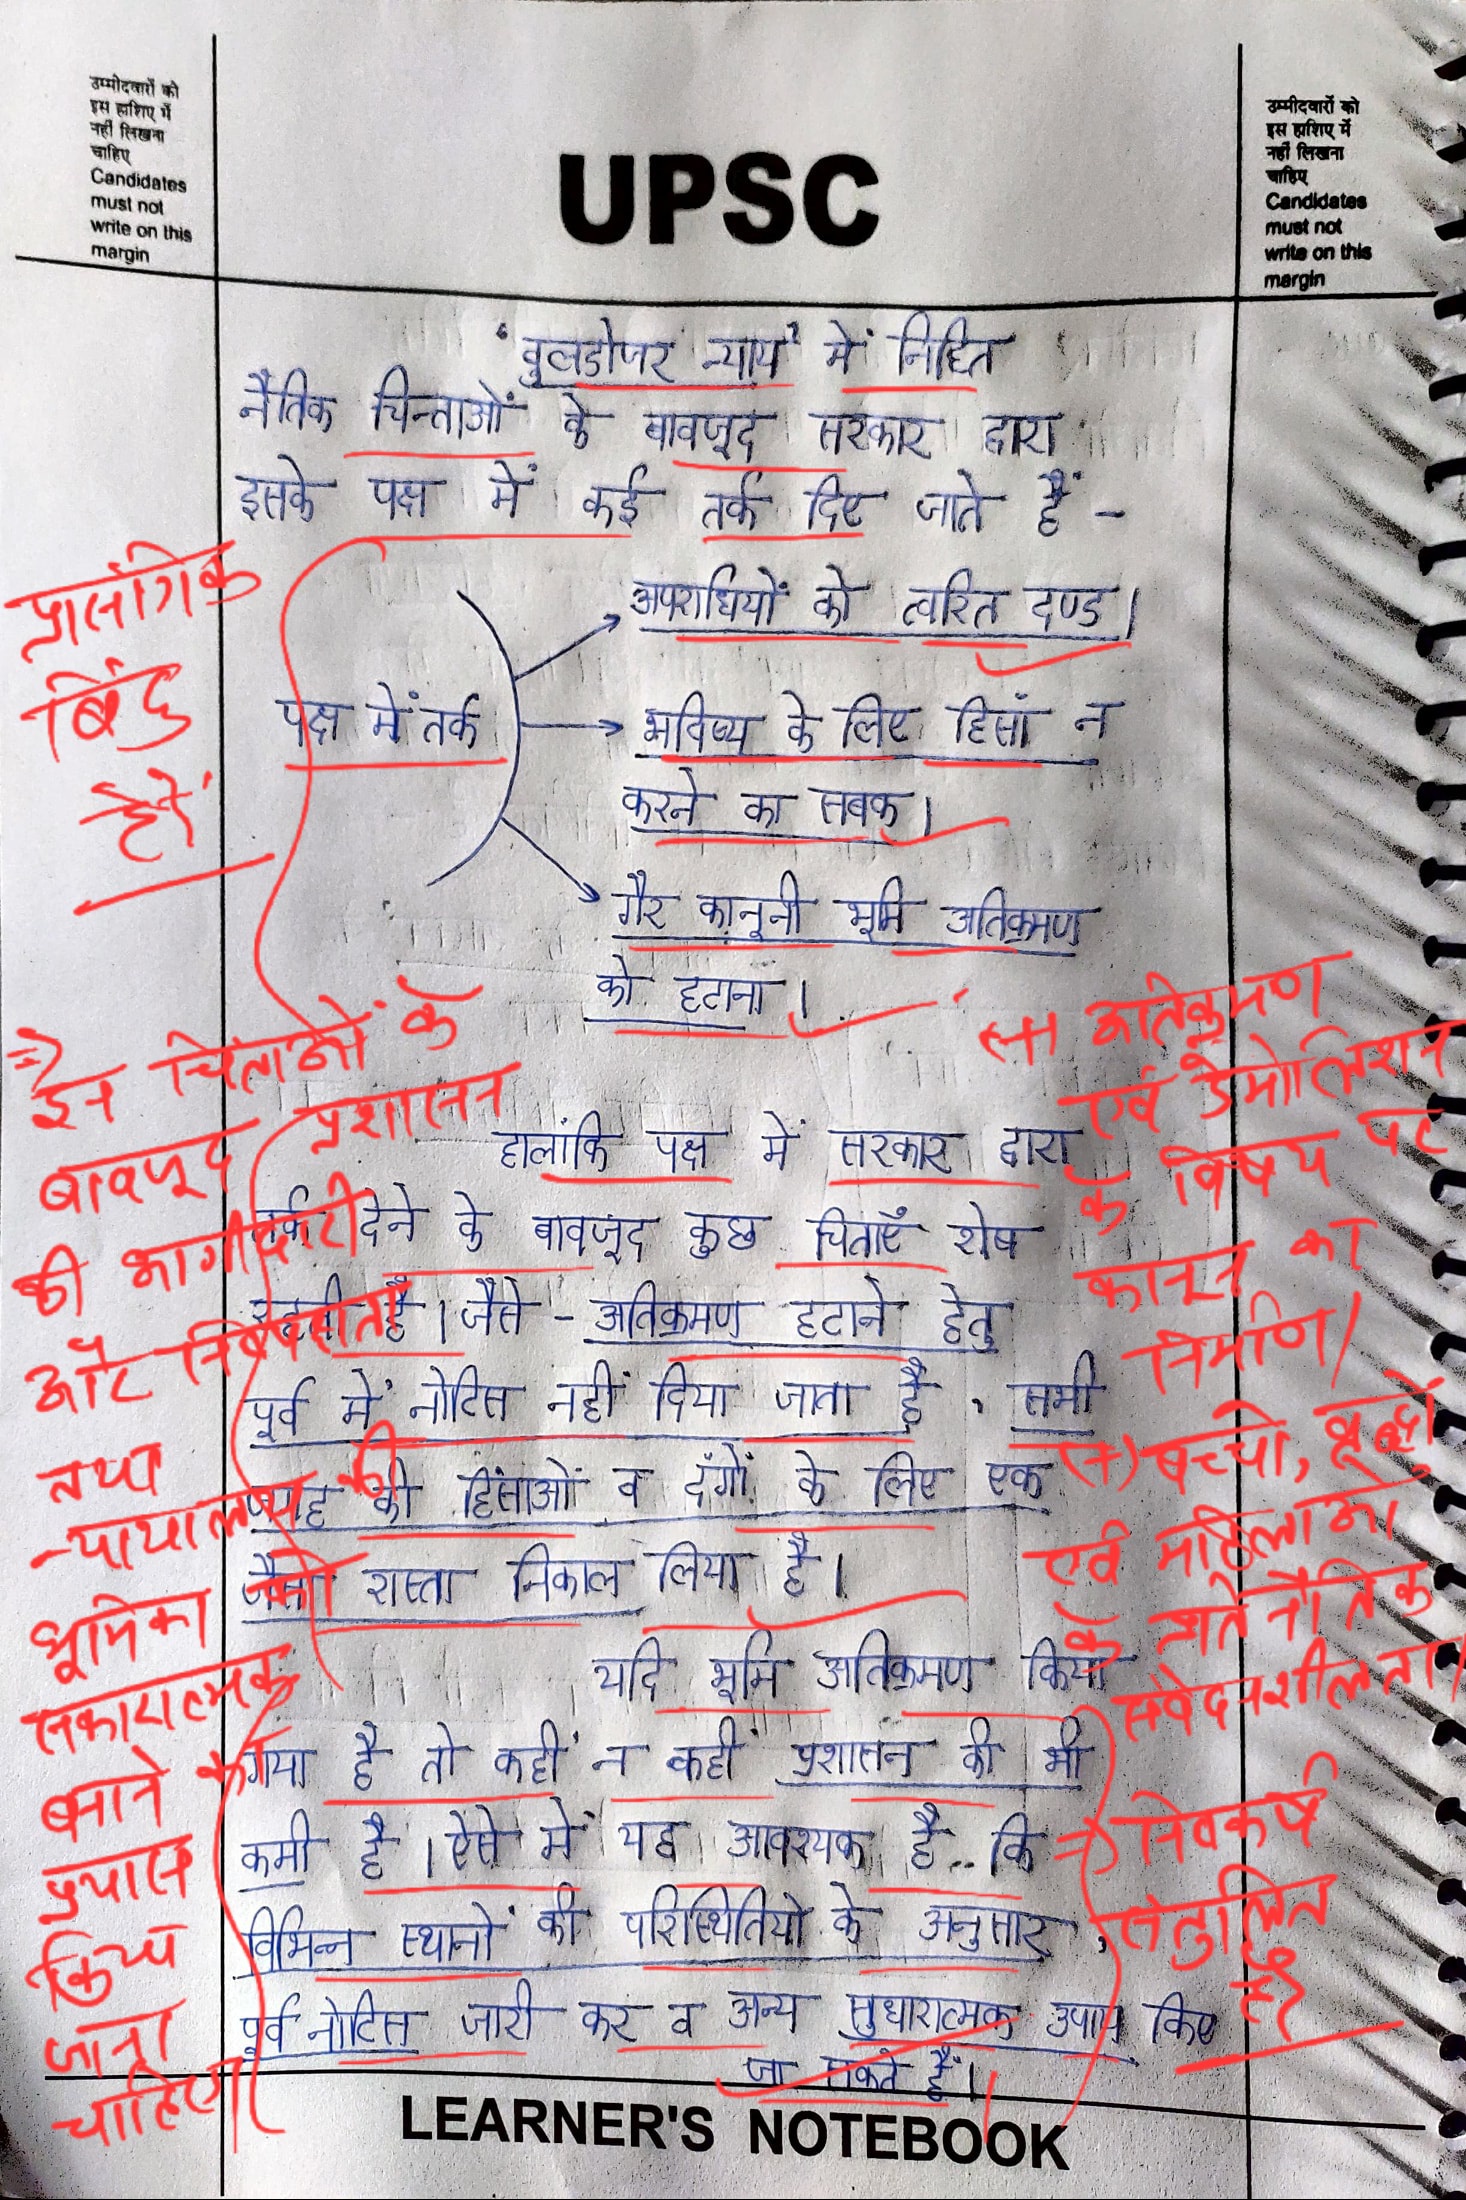 उम्मीदवारों को
इस हाशिए में
नहीं लिखना
चाहिए
Candidates
must not
write on this
margin
UPSC
उम्मीदवारों को
इस हाशिए में
नहीं लिखना
चाहिए
Candidates
must not
write on this
margin
'बुलडोजर न्याय' में निहित
नैतिक चिन्ताओं के बावजूद सरकार द्वारा
इसके पक्ष में कई तर्क दिए जाते हैं -
पक्ष में तर्क
अपराधियों को त्वरित दण्ड।
भविष्य के लिए हिंसा न
करने का सबक।
गैर कानूनी भूमि अतिक्रमण
को हटाना।
हालांकि पक्ष में सरकार द्वारा
तर्क देने के बावजूद कुछ चिंताएँ शेष
रहती है। जैसे - अतिक्रमण हटाने हेतु
पूर्व में नोटिस नहीं दिया जाता है, सभी
जगह की हिंसाओं व दंगों के लिए एक
जैसा रास्ता निकाल लिया है।
यदि भूमि अतिक्रमण किया
गया है तो कहीं न कहीं प्रशासन की भी
कमी है। ऐसे में यह आवश्यक है कि
विभिन्न स्थानों की परिस्थितियों के अनुसार,
पूर्व नोटिस जारी कर व अन्य सुधारात्मक उपाय किए
जा सकते हैं।
प्रासंगिक
बिंदु
हैं
⇒
इन चिंताओं के
बावजूद प्रशासन
की भागीदारी
और निष्पक्षता
तथा
न्यायालय की
भूमिका को
सकारात्मक
बनाने के
प्रयास
किया
जाना
चाहिए।
(+) अतिक्रमण
एवं डेमोलिशन
के विषय पर
कानून का
निर्माण।
(+) बच्चों, वृद्धों
एवं महिलाओं
के प्रति नैतिक
संवेदनशीलता।
⇒ निष्कर्ष
संतुलित
है
LEARNER'S NOTEBOOK